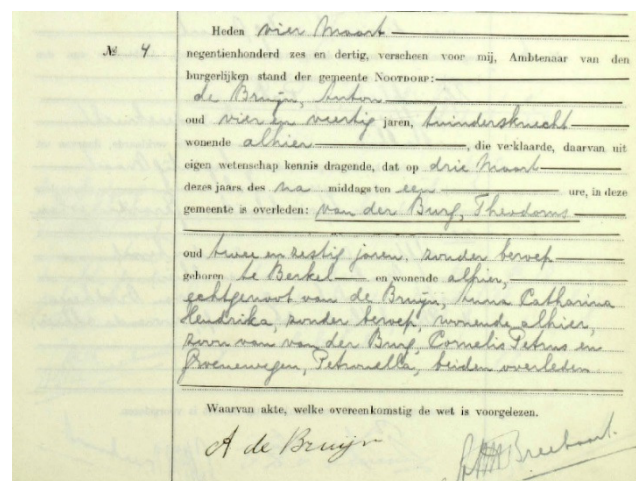 Heden vier Maart
№ 4 negentienhonderd zes en dertig, verscheen voor mij, Ambtenaar van den
burgerlijken stand der gemeente NOOTDORP:
de Bruijn, Anton
oud vier en veertig jaren, tuindersknecht
wonende alhier, die verklaarde, daarvan uit
eigen wetenschap kennis dragende, dat op drie Maart
dezes jaars des na middags ten een ure, in deze
gemeente is overleden: van der Burg, Theodorus
oud twee en zestig jaren, zonder beroep
geboren te Berkel en wonende alhier,
echtgenoot van de Bruijn, Anna Catharina
Hendrika, zonder beroep, wonende alhier,
zoon van van der Burg, Cornelis Petrus en
Groenewegen, Petronella, beiden overleden
Waarvan akte, welke overeenkomstig de wet is voorgelezen.
A de Bruijn
Breebaart.